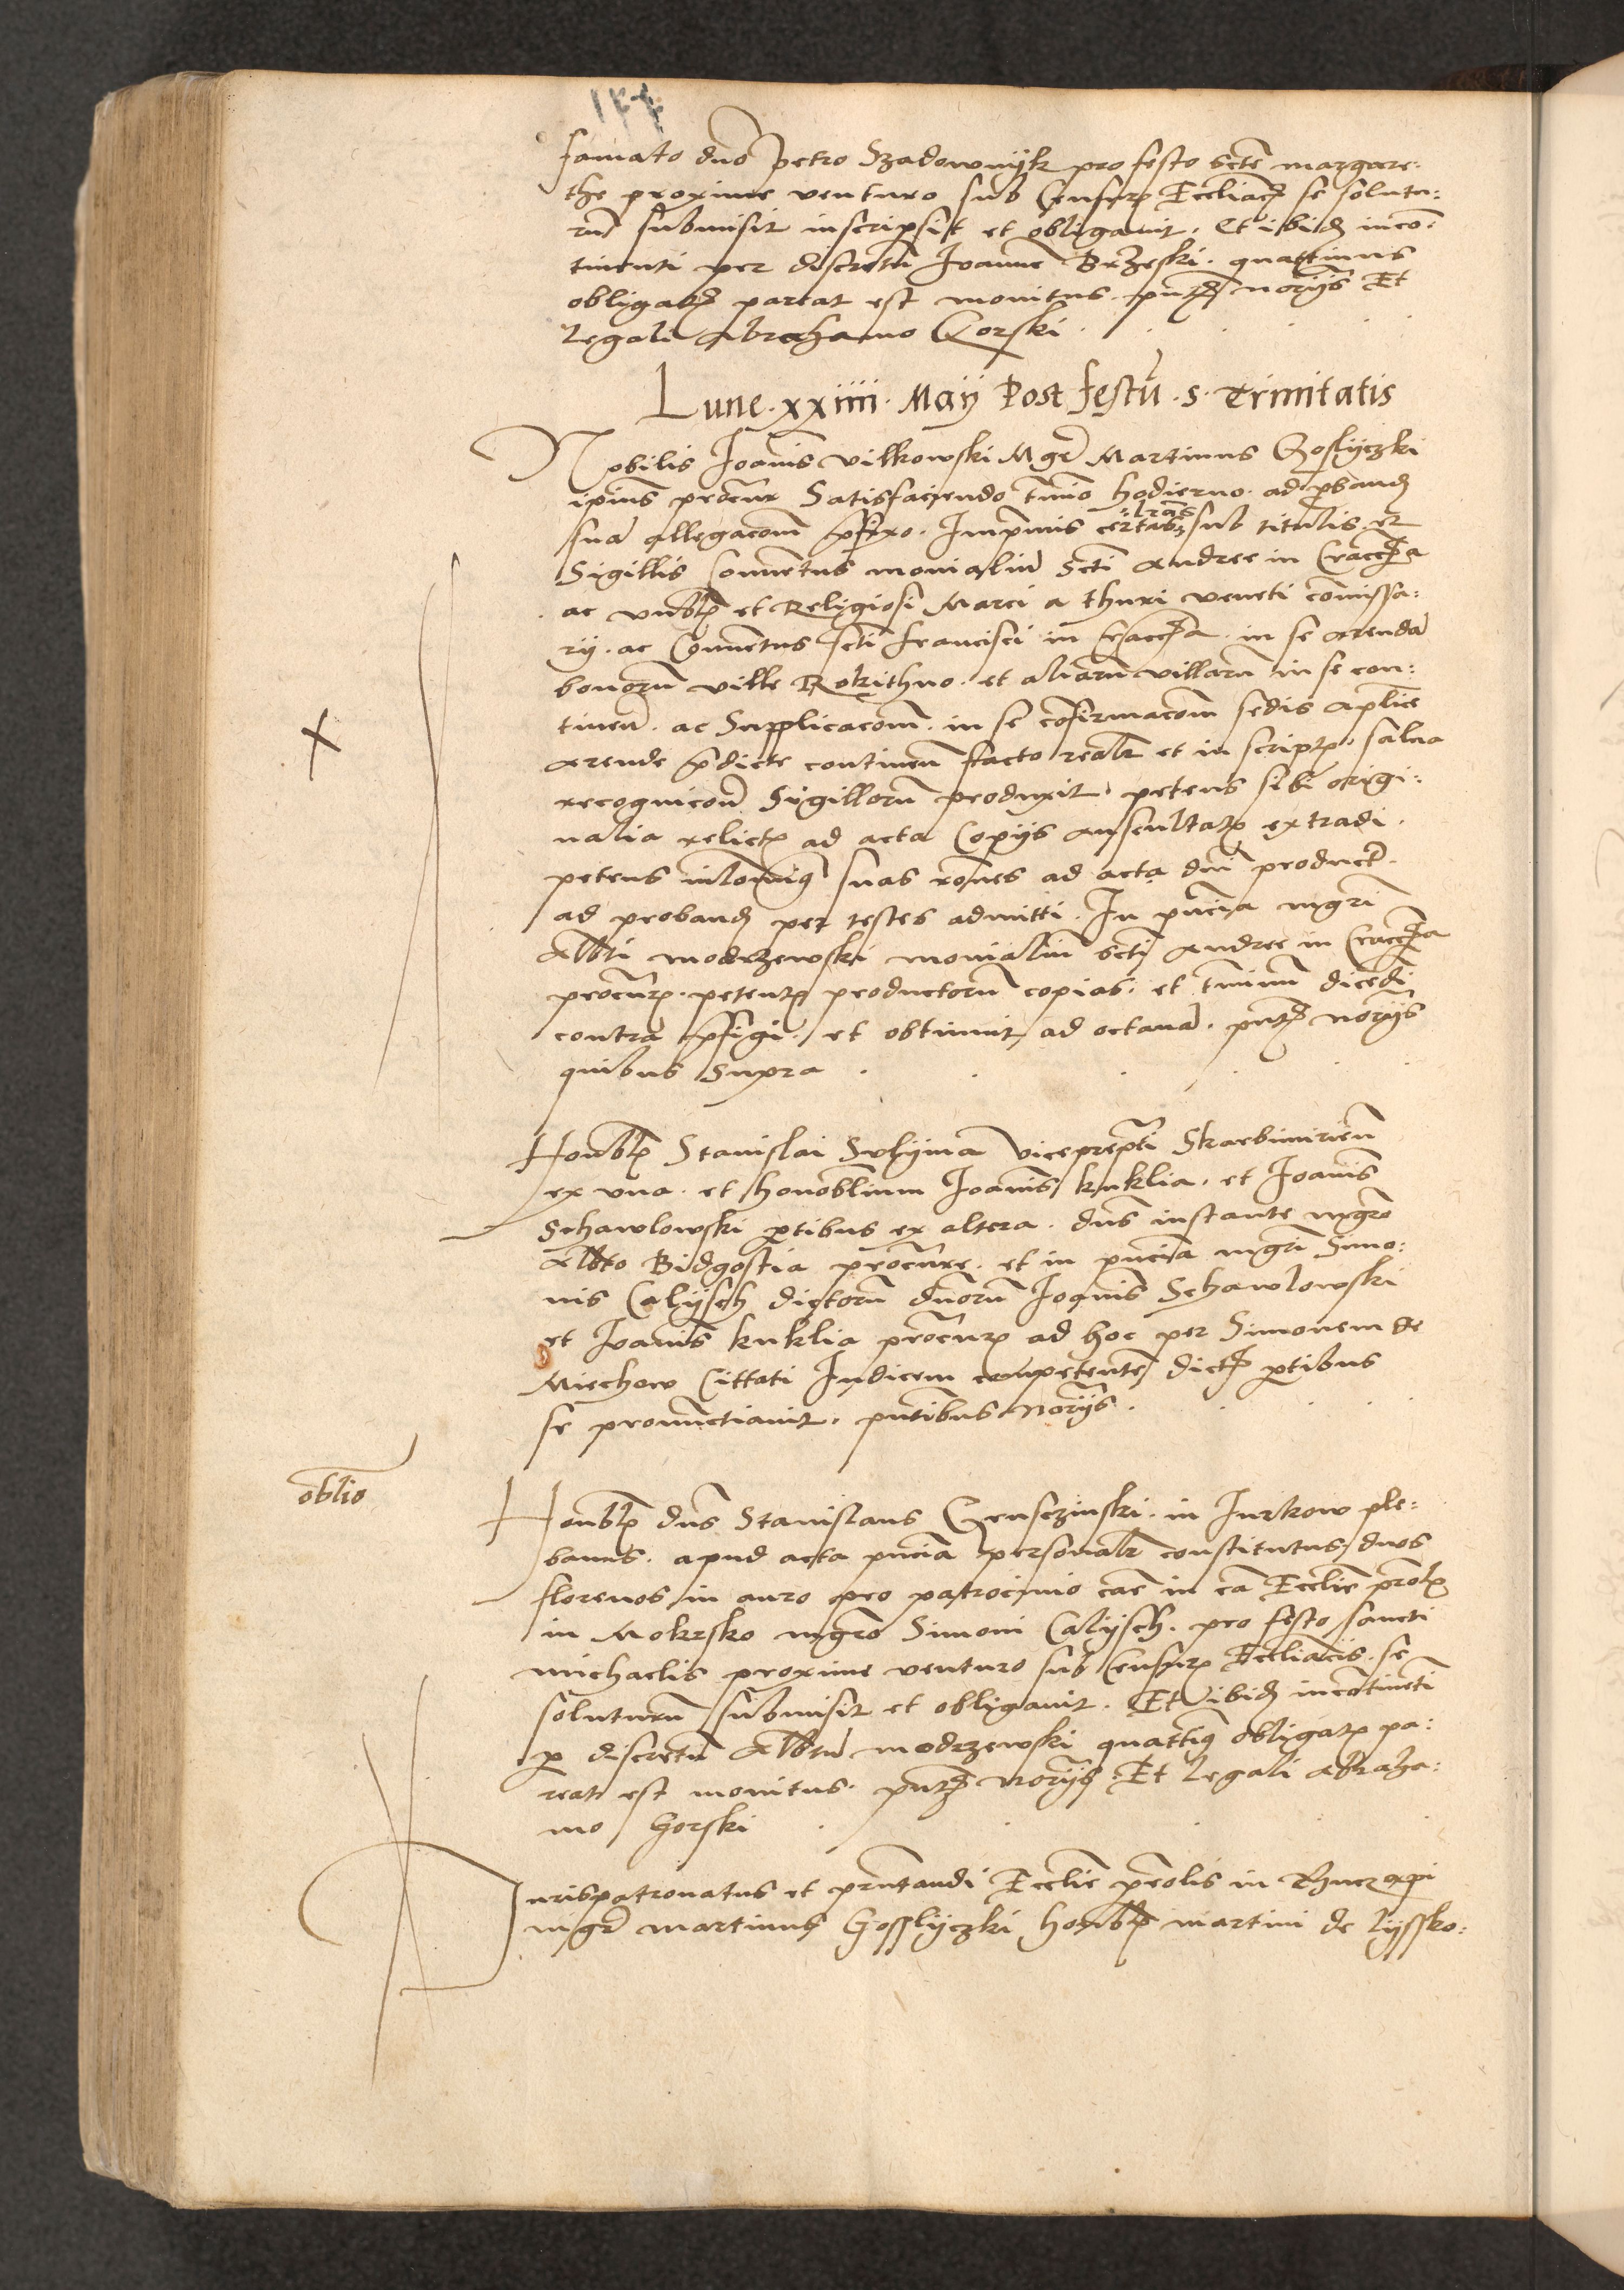 famato dno Petro Szadownyk pro festo scte margare:
the proxime venturo sub Censuris Eccliacis se solutu:
rum submisit inscripsit et obligavit. Et ibidem incon:
tinenti per discretum Joannem Brzeski. quatinus
obligatis pareat est monitus. pntibus noriis Et
legali Abrahamo Gorski.
Lune. xxiiii. Maij Post festū. s. Trinitatis
Nobilis Joannis vilkowski Mgr Martinus Goslyczki
ipius procur Satisfaciendo tmino hodierno. ad proband
sua allegacom prefixo. Inprimis certas lras sub titulis et
Sigillis Conventus monialiu Scti Andree in Cracovia
ac vnblis et Religiosi Marci a thuri veneti comissa:
rij. ac Conventus scti Francisci in Cracovia. in se arenda
bonoru ville Rokithno. et aliaru villaru in se con:
tinen. ac Supplicacom. in se cofirmacom sedis aplice
arende predicte continen facto realr et in scriptis. salva
recognicoe Sigilloru produxit. petens sibi origi:
nalia relictis ad acta Copijs auscultatis extradi.
petens suas rones ad acta product.
ad proband per testes admitti. In pncia mgri
Albti modrzewski monialiu scti Andree in Cracovia
procuris. petentis productoru copias. et tminu dicedi
contra prefigi. et obtinuit ad octava. pntibus noriis
quibus supra.
Honblis Stanislai Svlyma viceprepti Skarbimirien
ex vna. et honoblium Joannis kuklia. et Joannis
Schawlowski partibus ex altera. dns instante mgro
Albto Bidgostia procure. et in pncia mgri Simo:
nis Calysch dictoru dnoru Joannis Schawlowski
et Joannis kuklia procuris ad hoc per Simonem de
Miechow Cittati Judicem competente dictis partibus
se pronunctiavit. pntibus noriis.
oblio
Honblis dns Stanislaus in Jurkow ple:
banus. apud acta pncia personalr constitutus duos
florenos in auro pro patrocinio cae in ca Ecclie prolis
in Mokrsko mgro Simoni Calysch. pro festo sancti
michaelis proxime venturo sub Censuris Eccliacis. se
soluturu submisit et obligavit. Et ibid incotineti
per discretu Albtu modrzewski quattinus obligatis pa:
reat est monitus. pntibus noriis. Et legali Abraha:
mo Gorski
Jurispatronatus et prntandi Ecclie prolis in
mgr martinus Gosslyczki Honblis martini de lyssko: